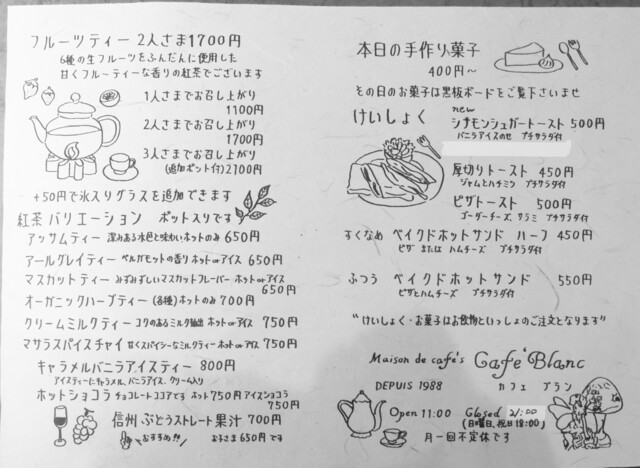 フルーツティー 2人さま1700円
6種の生フルーツをふんだんに使用した
甘くフルーティーな香りの紅茶でございます
1人さまでお召し上がり
1100円
2人さまでお召し上がり
1700円
3人さまでお召し上がり
(追加ポット付)2100円
+50円で氷入りグラスを追加できます
紅茶バリエーション ポット入りです
アッサムティー 深みある水色と味わいホットのみ 650円
アールグレイティー ベルガモットの香りホットorアイス 650円
マスカットティー みずみずしいマスカットフレーバー ホットorアイス
650円
オーガニックハーブティー(各種)ホットのみ 700円
クリームミルクティー コクのあるミルク抽出 ホットorアイス 750円
マサラスパイスチャイ 甘くスパイシーなミルクティー ホットorアイス 750円
キャラメルバニラアイスティー 800円
アイスティーにキャラメル、バニラアイス、クリーム入り
ホットショコラ チョコレートココアです ホット750円 アイスショコラ
750円
信州 ぶとうストレート果汁 700円
おすすめ!! お子さま650円です
本日の手作り菓子
400円~
その日のお菓子は黒板ボードをご覧下さいませ
けいしょく
new
シナモンシュガートースト 500円
バニラアイスのせ プチサラダ付
厚切りトースト 450円
ジャムとハチミツ プチサラダ付
ピザトースト 500円
ゴーダーチーズ、サラミ プチサラダ付
すくなめ ベイクドホットサンド ハーフ 450円
ピザ または ハムチーズ プチサラダ付
ふつう ベイクドホットサンド 550円
ピザとハムチーズ プチサラダ付
"けいしょく・お菓子はお飲物といっしょのご注文となります"
Maison de cafe's Cafe' Blanc
DEPUIS 1988 カフェ ブラン
Open 11:00 Closed 21:00
(日曜日、祝日18:00)
月一回不定休です